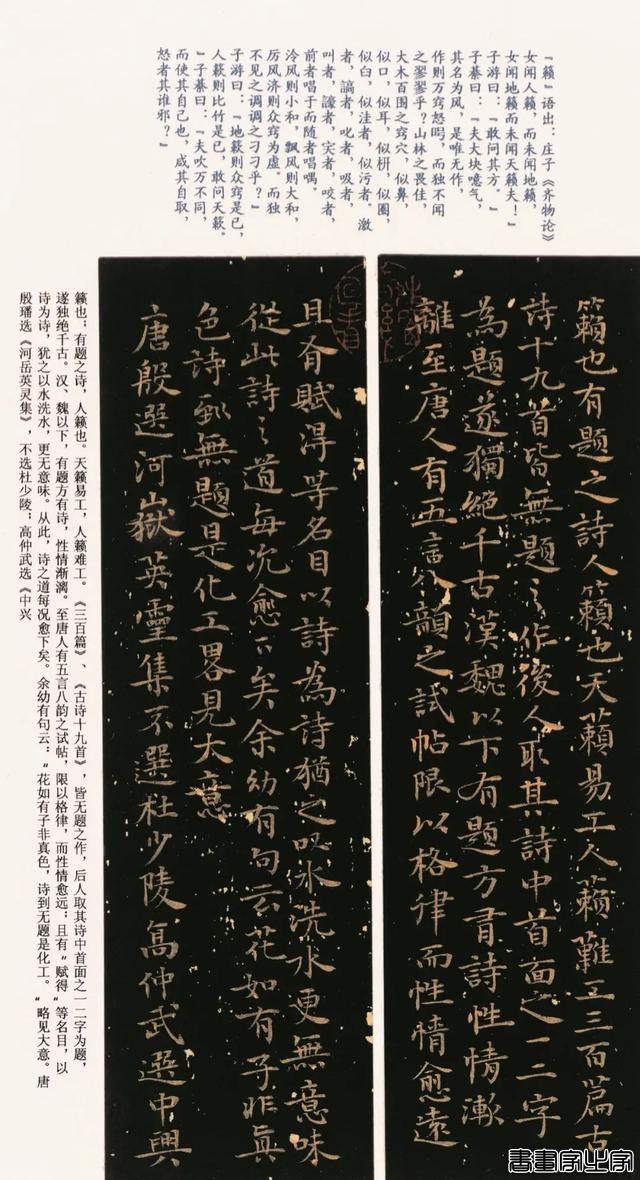 『籁』语出：庄子《齐物论》
女闻人籁，而未闻地籁，
女闻地籁而未闻天籁夫！”
子游曰：“敢问其方。”
子綦曰：“夫大块噫气，
其名为风，是唯无作，
作则万窍怒呺，而独不闻
之翏翏乎？山林之畏佳，
大木百围之窍穴，似鼻，
似口，似耳，似枅，似圈，
似臼，似洼者，似污者。激
者，謞者，叱者，吸者，
叫者，譹者，宎者，咬者，
前者唱于而随者唱喁。
泠风则小和，飘风则大和，
厉风济则众窍为虚。而独
不见之调调之刁刁乎？”
子游曰：“地籁则众窍是已，
人籁则比竹是已，敢问天籁。
”子綦曰：“夫吹万不同，
而使其自己也，咸其自取，
怒者其谁邪？”
籟也有題之詩人籟也天籟易工人籟難工三百篇古
詩十九首皆無題之作後人取其詩中首面之一二字
為題遂獨絕千古漢魏以下有題方有詩性情漸
離至唐人有五言八韻之試帖限以格律而性情愈遠
且有賦得等名目以詩為詩猶之以水洗水更無意味
從此詩之道每况愈下矣余幼有句云花如有子非真
色詩到無題是化工畧見大意
唐殷選河山嶽英靈集不選杜少陵高仲武選中興
籁也；有题之诗，人籁也。天籁易工，人籁难工。《三百篇》、《古诗十九首》，皆无题之作，后人取其诗中首面之一二字为题，
遂独绝千古。汉、魏以下，有题方有诗，性情渐漓。至唐人有五言八韵之试帖，限以格律，而性情愈远；且有“赋得”等名目，以
诗为诗，犹之以水洗水，更无意味。从此，诗之道每况愈下矣。余幼有句云：“花如有子非真色，诗到无题是化工。”略见大意。唐
殷璠选《河岳英灵集》，不选杜少陵；高仲武选《中兴
書畫家必字